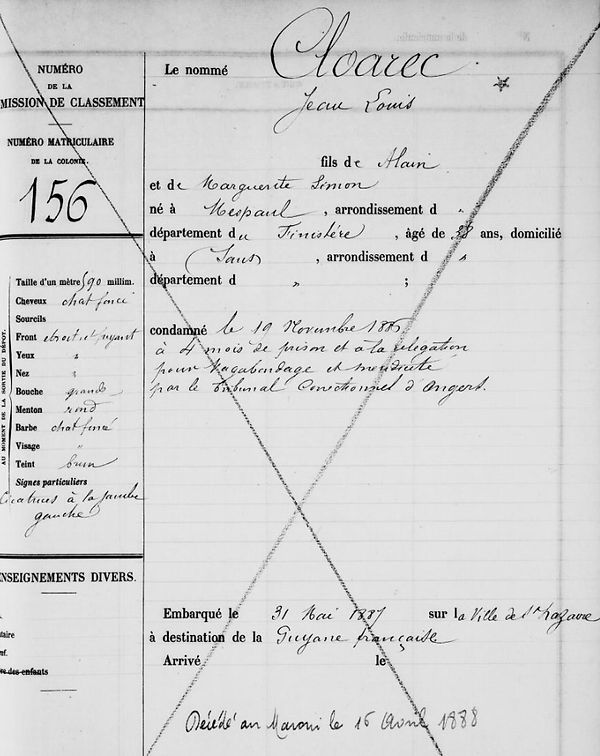 NUMÉRO
DE LA
MISSION DE CLASSEMENT
NUMÉRO MATRICULAIRE
DE LA COLONIE.
156
AU MOMENT DE LA SORTIE DU DÉPOT.
Taille d'un mètre 590 millim.
Cheveux chat foncé
Sourcils
Front étroit et fuyant
Yeux "
Nez "
Bouche grande
Menton rond
Barbe chat foncé
Visage "
Teint brun
Signes particuliers
Cicatrices à la jambe
gauche
NSEIGNEMENTS DIVERS.
taire
nf.
re des enfants
Le nommé Cloarec
Jean Louis
fils de Alain
et de Marguerite Simon
né à Mespaul, arrondissement d "
département du Finistère, âgé de ans, domicilié
à Sans, arrondissement d "
département d " ;
condamné le 19 Novembre
à 4 mois de prison et à la relégation
pour Vagabondage et mendicité
par le Tribunal Correctionnel d'Angers.
Embarqué le 31 Mai 1887 sur la Ville de St Nazaire
à destination de la Guyane française
Arrivé le
Décédé au Maroni le 16 Avril 1888